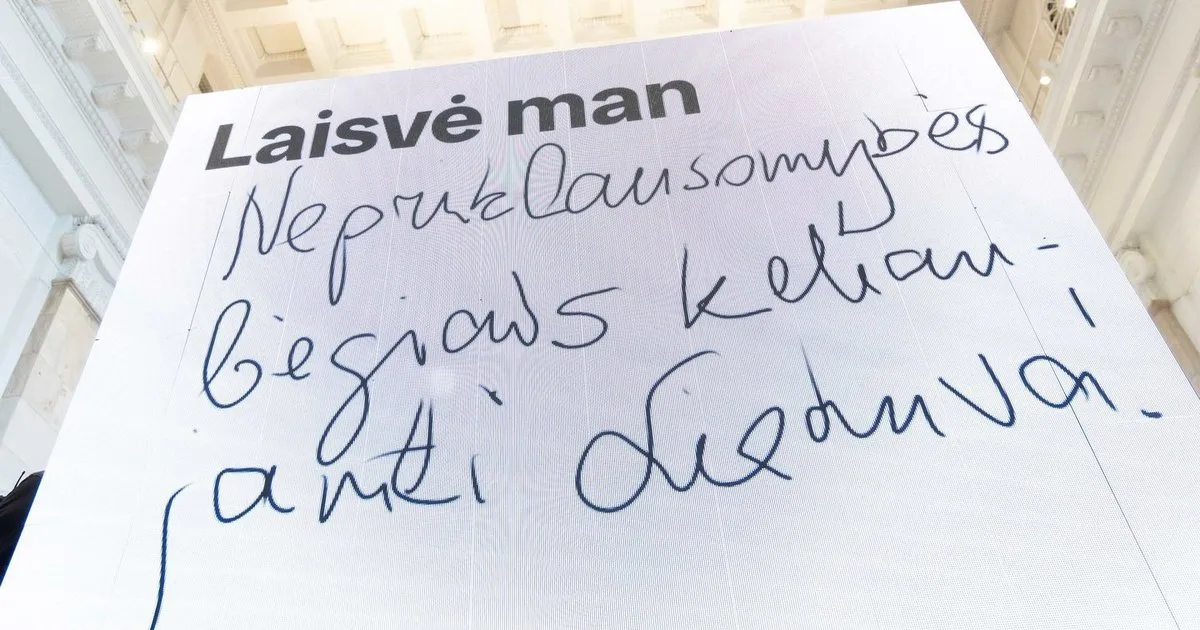 Laisvė man
Nepriklausomybės
bėgiais keliau-
janti Lietuva.